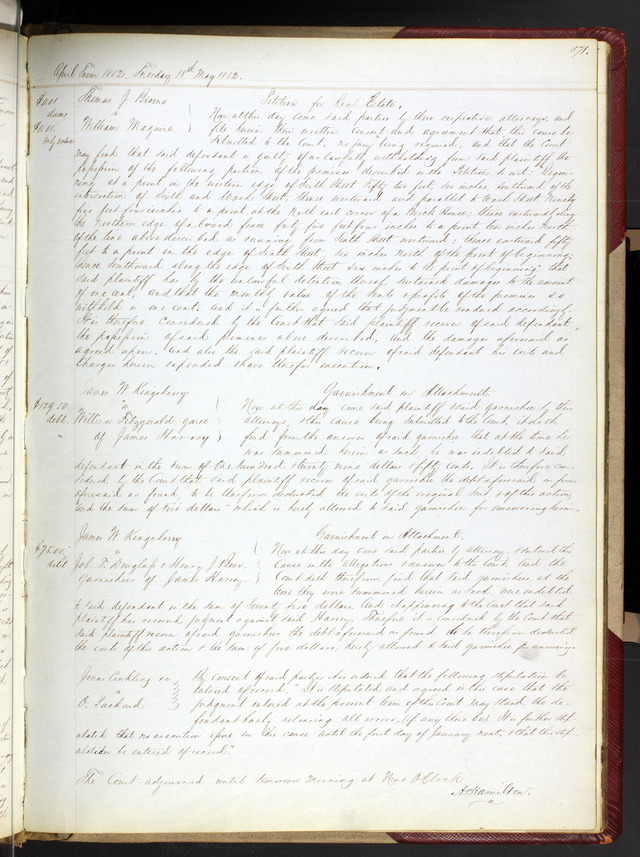 571.
April Term 1852. Tuesday, 18th May 1852.
Thomas J. Bismo Petition for Real Estate.
$0.01 dams
William Maguire } Now at this day come said parties by their respective attorneys, and
file herein their written consent and agreement that this cause be
submitted to the Court, no jury being required, and that the Court
may find that said defendant is guilty of unlawfully withholding from said plaintiff the
possession of the following portion of the premises described in the Petition to wit: Begin-
ning at a point in the western edge of Sixth Street fifty two feet, six inches, southward of the
intersection of Sixth and Wash Street, thence westward and parallel to Wash Street Ninety
five feet four inches to a point at the North east corner of a Brick House; thence eastward along
the Northern edge of a board fence forty five feet four inches to a point ten inches North
of the line above described as running from Sixth Street westward; thence eastward fifty
feet to a point in the edge of Sixth Street six inches North of the point of beginning;
thence southward along the edge of Sixth Street six inches to the point of beginning; that
said plaintiff has by the unlawful detention thereof sustained damages to the amount
of one cent, and that the monthly value of the rents & profits of the premises so
withheld is one cent, and it is further agreed that judgment be rendered accordingly.
It is therefore considered by the Court that said plaintiff recover of said defendant,
the possession of said premises above described, and the damages aforesaid as
agreed upon. And also the said plaintiff recover of said defendant his costs and
charges herein expended & have therefor execution.
James W. Kingsberry Garnishment in Attachment.
$129.50 debt.
vs
William Fitzgerald, garee
of James Harvey } Now at this day come said plaintiff & said garnishee by their
attorneys, & this cause being submitted to the Court, it doth
find from the answer of said garnishee that at the time he
was summoned herein as such, he was indebted to said
defendant in the sum of One hundred & twenty nine dollars & fifty cents. It is therefore con-
sidered by the Court that said plaintiff recover of said garnishee the debt aforesaid in form
aforesaid as found, to be therefrom deducted the costs of the original suit, & of this action,
and the sum of Five dollars which is hereby allowed to said garnishee for answering herein.
James W. Kingsberry Garnishment in Attachment.
$75.00 debt
vs
Job T. Douglass & Henry J. Beer.
Garnishees of James Harvey. } Now at this day come said parties by attorney, & submit the
cause in the allegations & answer to the Court. And the
Court doth therefrom find that said garnishees at the
time they were summoned herein as such, were indebted
to said defendant in the sum of Seventy five dollars. And it appearing to the Court that said
plaintiff has recovered judgment against said Harvey. Therefore it is considered by the Court that
said plaintiff recover of said garnishees the debt aforesaid as found to be therefrom deducted
the costs of this action & the sum of five dollars hereby allowed to said garnishees for answering.
Jonas Conkling
vs
O. Packard } By consent of said parties it is ordered that the following stipulation be
entered of record. "It is stipulated and agreed in this case that the
judgment entered at the present term of the Court may stand, the de-
fendant hereby releasing all errors, (if any there be) It is further stip-
ulated that no execution issue in this cause until the first day of January next, & that this stip-
ulation be entered of record."
The Court adjourned until tomorrow morning at Nine O'Clock.
A. Hamilton.